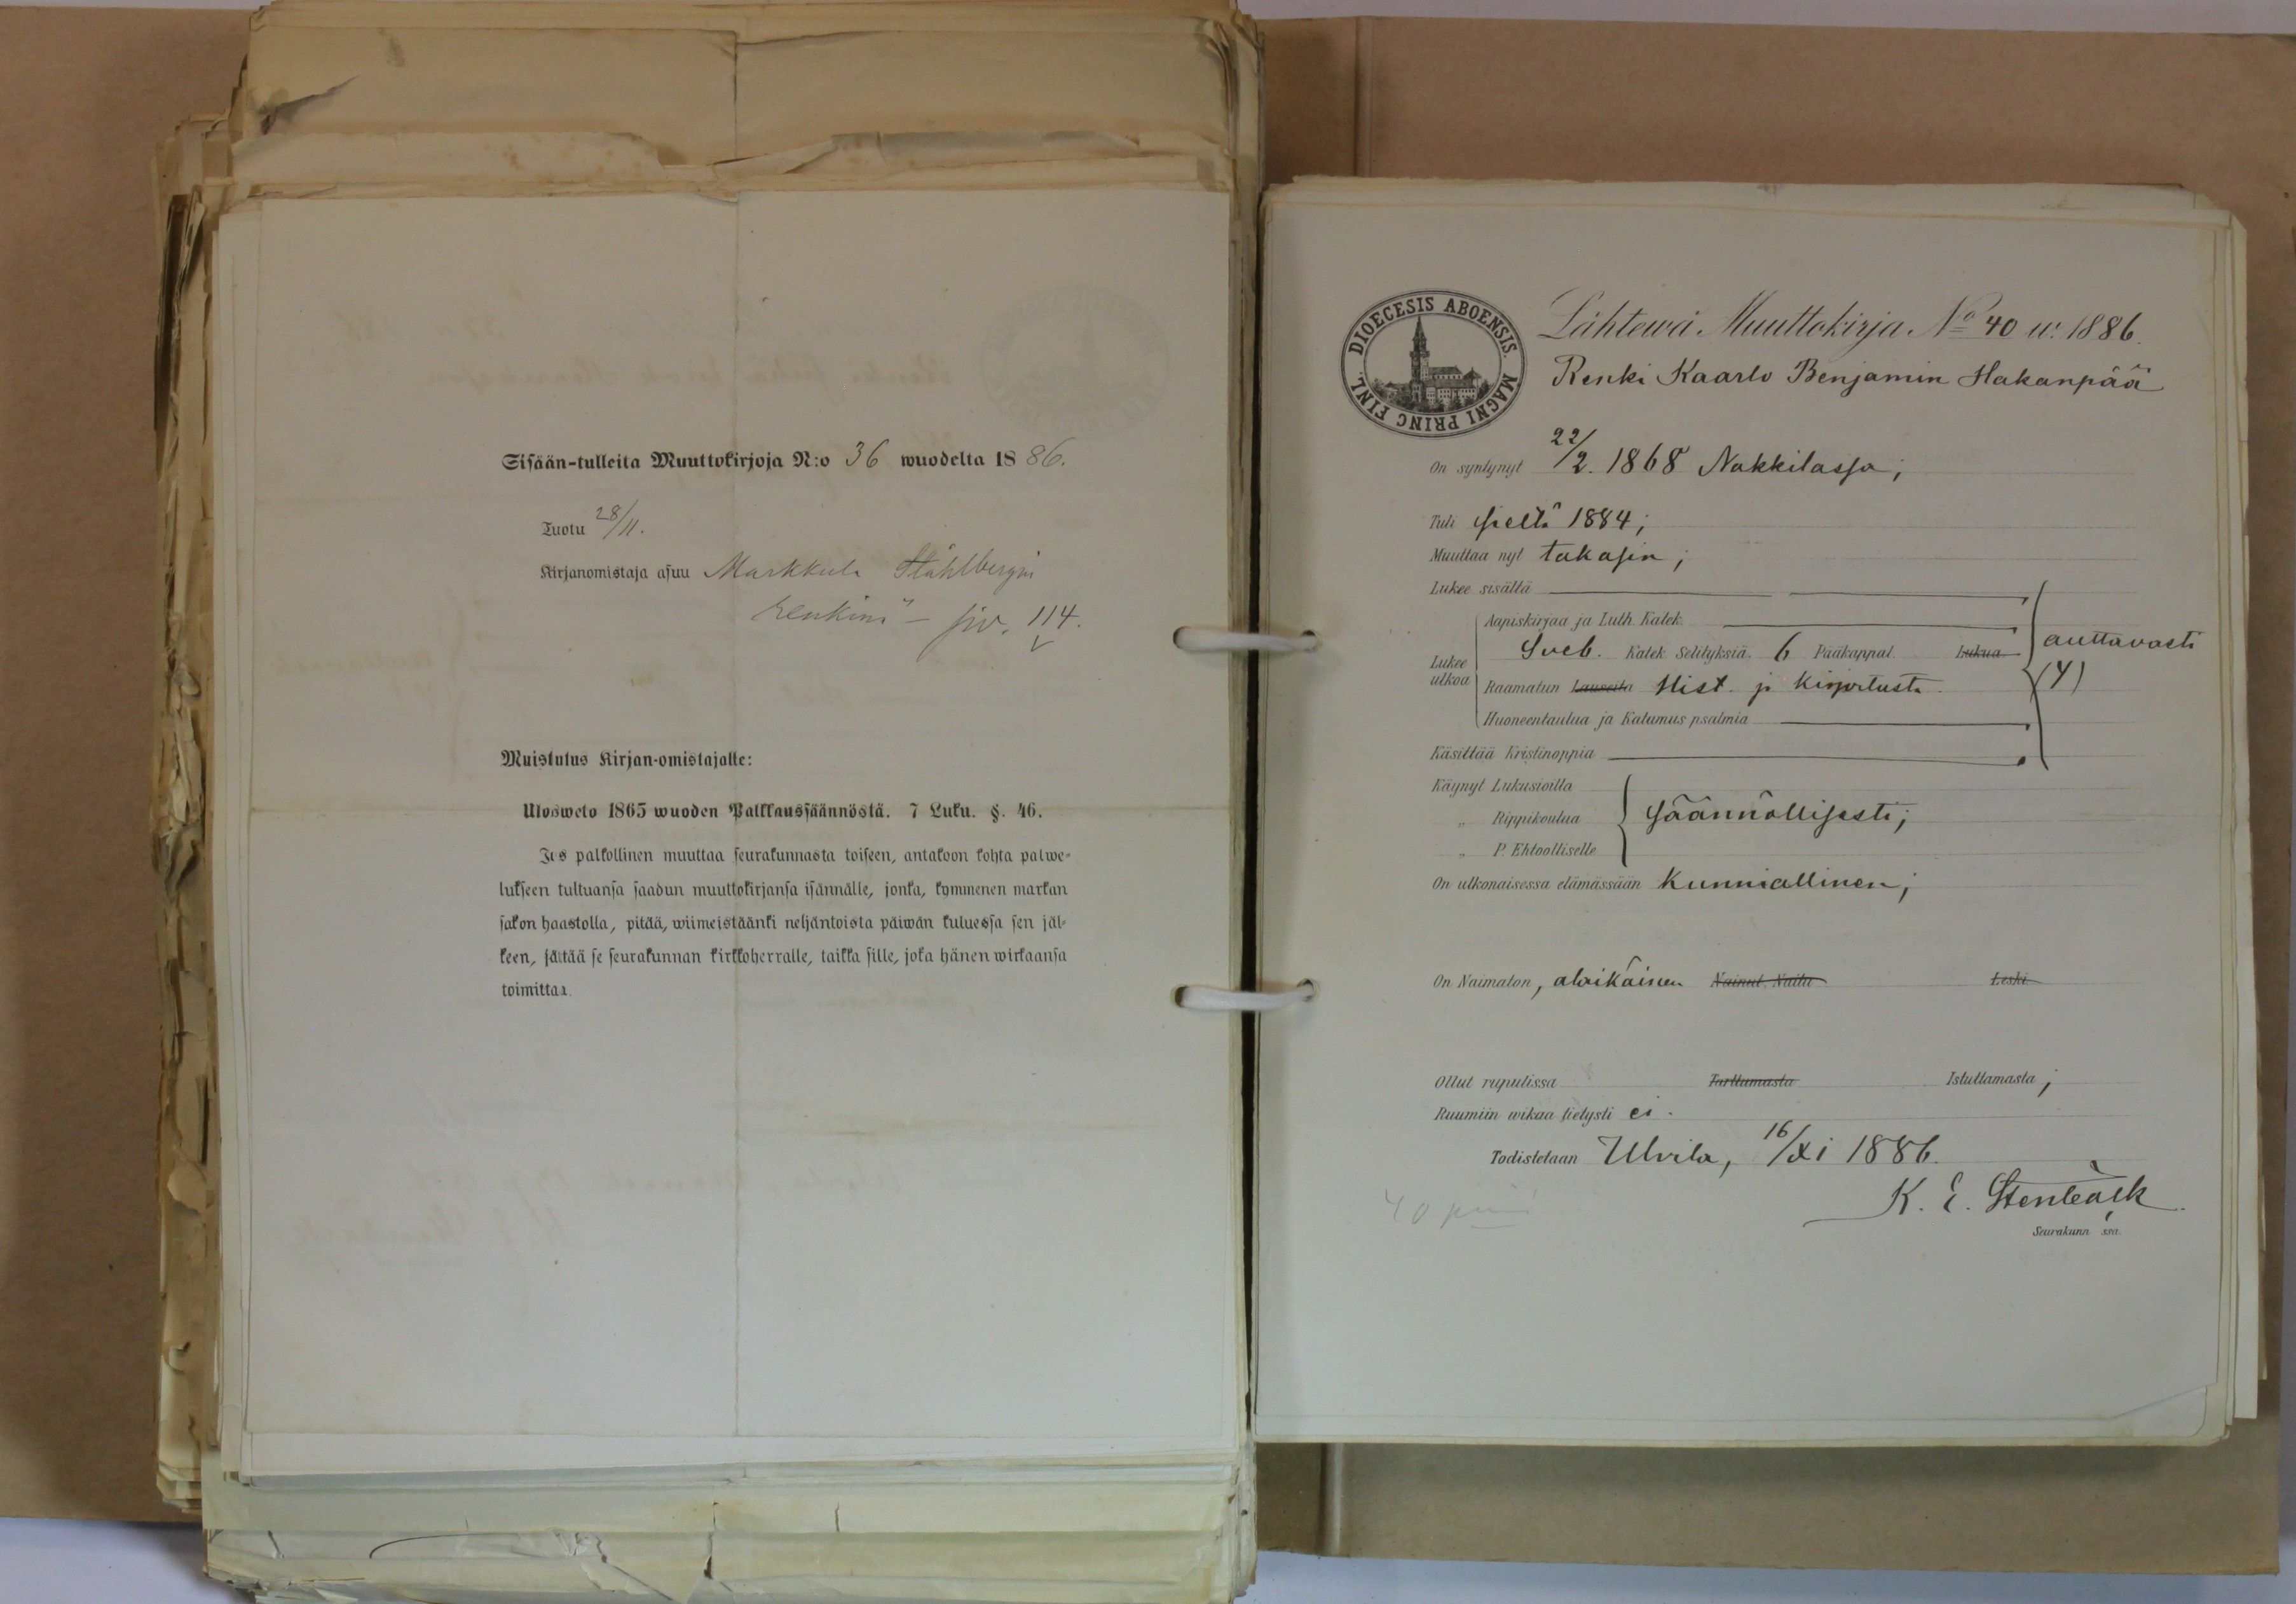 Sisään-tulleita Muuttokirjoja N:o 36 wuodelta 1886.
Tuotu 28/11.
Kirjanomistaja asuu Markkula Ståhlbergin
renkinä – siv. 114.
Muistutus Kirjan-omistajalle:
Ulosweto 1865 wuoden Palkkaussäännöstä. 7 Luku. §. 46.
Jos palkollinen muuttaa seurakunnasta toiseen, antakoon kohta palwe-
lukseen tultuansa saadun muuttokirjansa isännälle, jonka, kymmenen markan
sakon haastolla, pitää, wiimeistäänki neljäntoista päiwän kuluessa sen jäl-
keen, jättää se seurakunnan kirkkoherralle, taikka sille, joka hänen wirkaansa
toimittaa.
DIOECESIS ABOENSIS. MAGNI PRINC FINL.
Lähtewä Muuttokirja No 40 w. 1886.
Renki Kaarlo Benjamin Hakanpää
On syntynyt 22/2. 1868 Nakkilassa;
Tuli sieltä 1884;
Muuttaa nyt takasin;
Lukee sisältä
Aapiskirjaa ja Luth. Katek.
Lukee ulkoa
Sveb. Katek. Selityksiä. 6 Pääkappal. Lukua
auttavasti
(4)
Raamatun Lauseita Hist. ja kirjoitusta.
Huoneentaulua ja Katumus psalmia
Käsittää Kristinoppia
Käynyt Lukusioilla
„ Rippikoulua säännöllisesti;
„ P. Ehtoolliselle
On ulkonaisessa elämässään kunniallinen;
On Naimaton, alaikäinen Nainut. Naitu Leski
Ollut rupulissa Tarttumasta Istuttamasta;
Ruumiin wikaa tietysti ei.
Todistetaan Ulvila, 16/XI 1886.
K. E. Stenbäck.
Seurakunn ssa.
40 pni